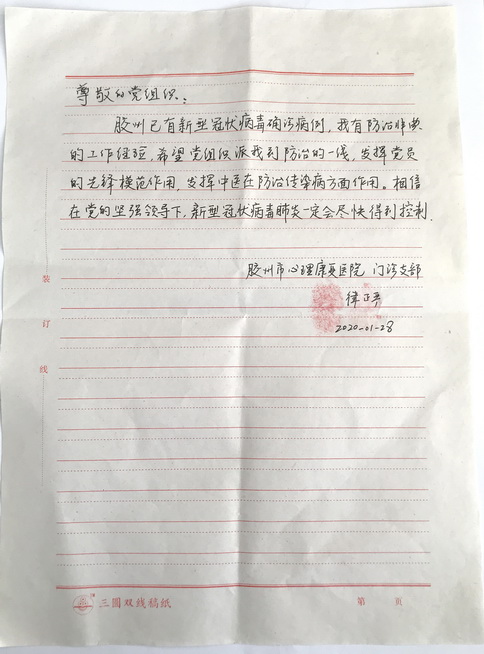 尊敬的党组织:
胶州已有新型冠状病毒确诊病例,我有防治非典
的工作经验,希望党组织派我到防治的一线,发挥党员
的先锋模范作用,发挥中医在防治传染病方面作用。相信
在党的坚强领导下,新型冠状病毒肺炎一定会尽快得到控制.
胶州市心理康复医院 门诊支部
2020-01-28
装
订
线
三圆双线稿纸
第 页